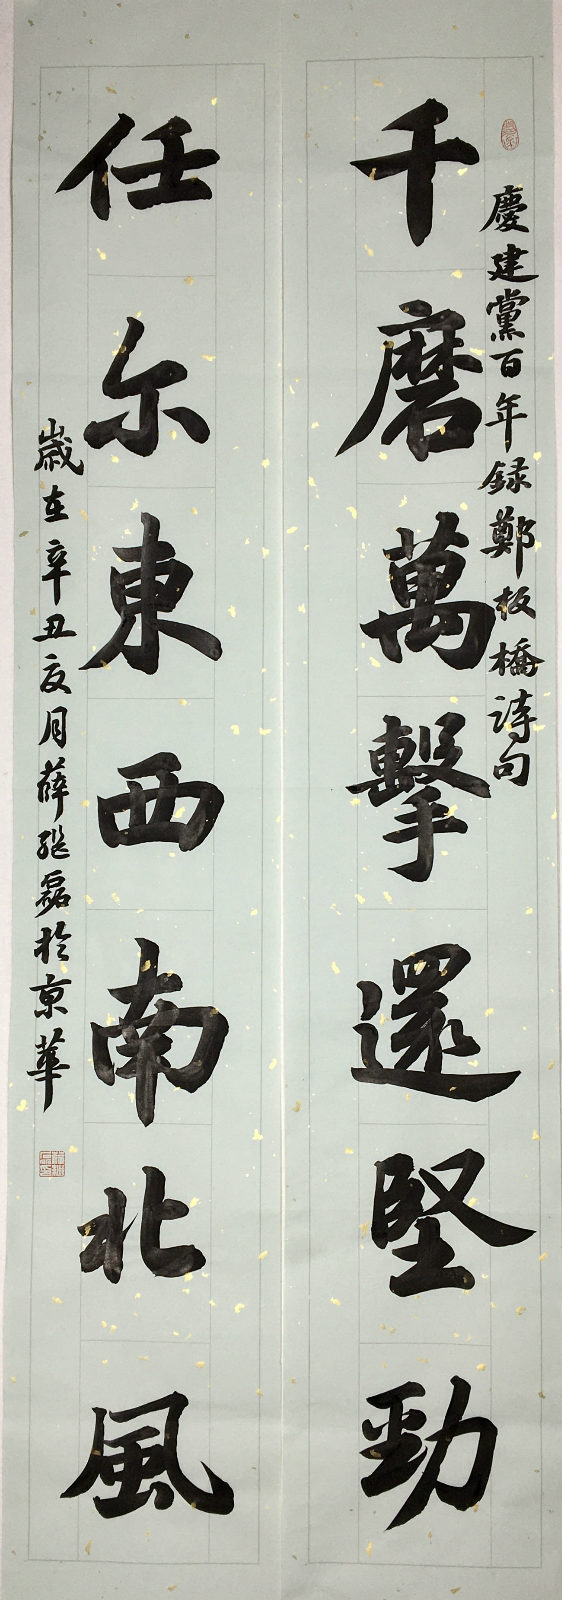 慶建黨百年録鄭板橋詩句
千磨萬擊還堅勁
任尔東西南北風
歲在辛丑夏月薛繼磊於京華